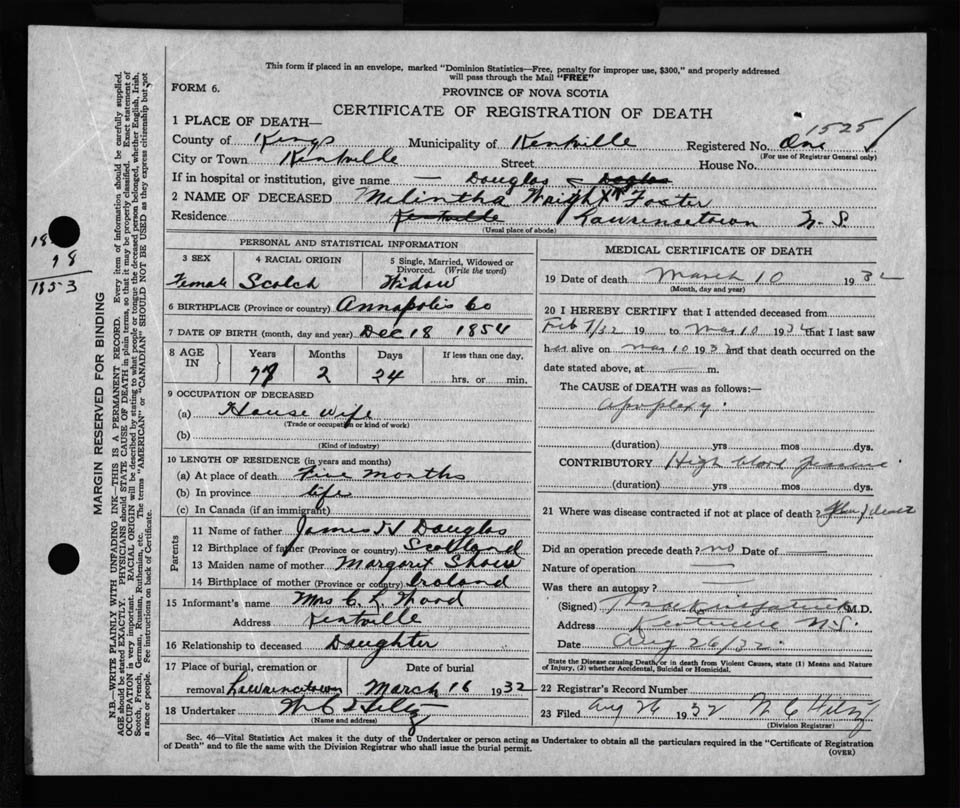 This form if placed in an envelope, marked "Dominion Statistics—Free, penalty for improper use, $300," and properly addressed
will pass through the Mail "FREE"
FORM 6.
PROVINCE OF NOVA SCOTIA
CERTIFICATE OF REGISTRATION OF DEATH
1525
1 PLACE OF DEATH—
County of Kings Municipality of Kentville Registered No. One
(For use of Registrar General only)
City or Town Kentville Street House No.
If in hospital or institution, give name — Douglas Douglas
2 NAME OF DECEASED Melintha Wright Foster
Residence Kentville Lawrencetown N.S.
(Usual place of abode)
PERSONAL AND STATISTICAL INFORMATION
3 SEX 4 RACIAL ORIGIN 5 Single, Married, Widowed or Divorced. (Write the word)
Female Scotch Widow
6 BIRTHPLACE (Province or country) Annapolis Co
7 DATE OF BIRTH (month, day and year) Dec 18 1854
8 AGE IN Years Months Days If less than one day,
77 2 24 hrs. or min.
9 OCCUPATION OF DECEASED
(a) House wife
(Trade or occupation or kind of work)
(b)
(Kind of industry)
10 LENGTH OF RESIDENCE (in years and months)
(a) At place of death Five months
(b) In province life
(c) In Canada (if an immigrant)
Parents
11 Name of father James H Douglas
12 Birthplace of father (Province or country) Scotland
13 Maiden name of mother Margaret Shaw
14 Birthplace of mother (Province or country) Ireland
15 Informant's name Mrs C L Wood
Address Kentville
16 Relationship to deceased Daughter
17 Place of burial, cremation or Date of burial
removal Lawrencetown March 16 1932
18 Undertaker W C Hiltz
(Name and address)
MEDICAL CERTIFICATE OF DEATH
19 Date of death March 10 1932
(Month, day and year)
20 I HEREBY CERTIFY that I attended deceased from
Feb 7/32 19 to Mar 10 1932 that I last saw
her alive on Mar 10 1932 and that death occurred on the
date stated above, at — m.
The CAUSE of DEATH was as follows:—
Apoplexy.
(duration) yrs mos dys.
CONTRIBUTORY High blood pressure
(duration) yrs mos dys.
21 Where was disease contracted if not at place of death? Place of death
Did an operation precede death? no Date of
Nature of operation —
Was there an autopsy? —
(Signed) M.D.
Address Kentville N.S.
Date Aug 26/32
State the Disease causing Death, or in death from Violent Causes, state (1) Means and Nature
of Injury, (2) whether Accidental, Suicidal or Homicidal.
22 Registrar's Record Number
23 Filed Aug 26 1932 W C Hiltz
(Division Registrar)
Sec. 46—Vital Statistics Act makes it the duty of the Undertaker or person acting as Undertaker to obtain all the particulars required in the "Certificate of Registration
of Death" and to file the same with the Division Registrar who shall issue the burial permit.
(OVER)
78
1853
MARGIN RESERVED FOR BINDING
N.B.—WRITE PLAINLY WITH UNFADING INK—THIS IS A PERMANENT RECORD. Every item of information should be carefully supplied.
AGE should be stated EXACTLY. PHYSICIANS should STATE CAUSE OF DEATH in plain terms, so that it may be properly classified. Exact statement of
OCCUPATION is very important. RACIAL ORIGIN will be described by stating to what people or tongue the deceased person belonged, whether English, Irish,
Scotch, French, German, Russian, Ruthenian, etc. The terms "AMERICAN" or "CANADIAN" SHOULD NOT BE USED as they express citizenship but not
a race or people. See instructions on back of Certificate.